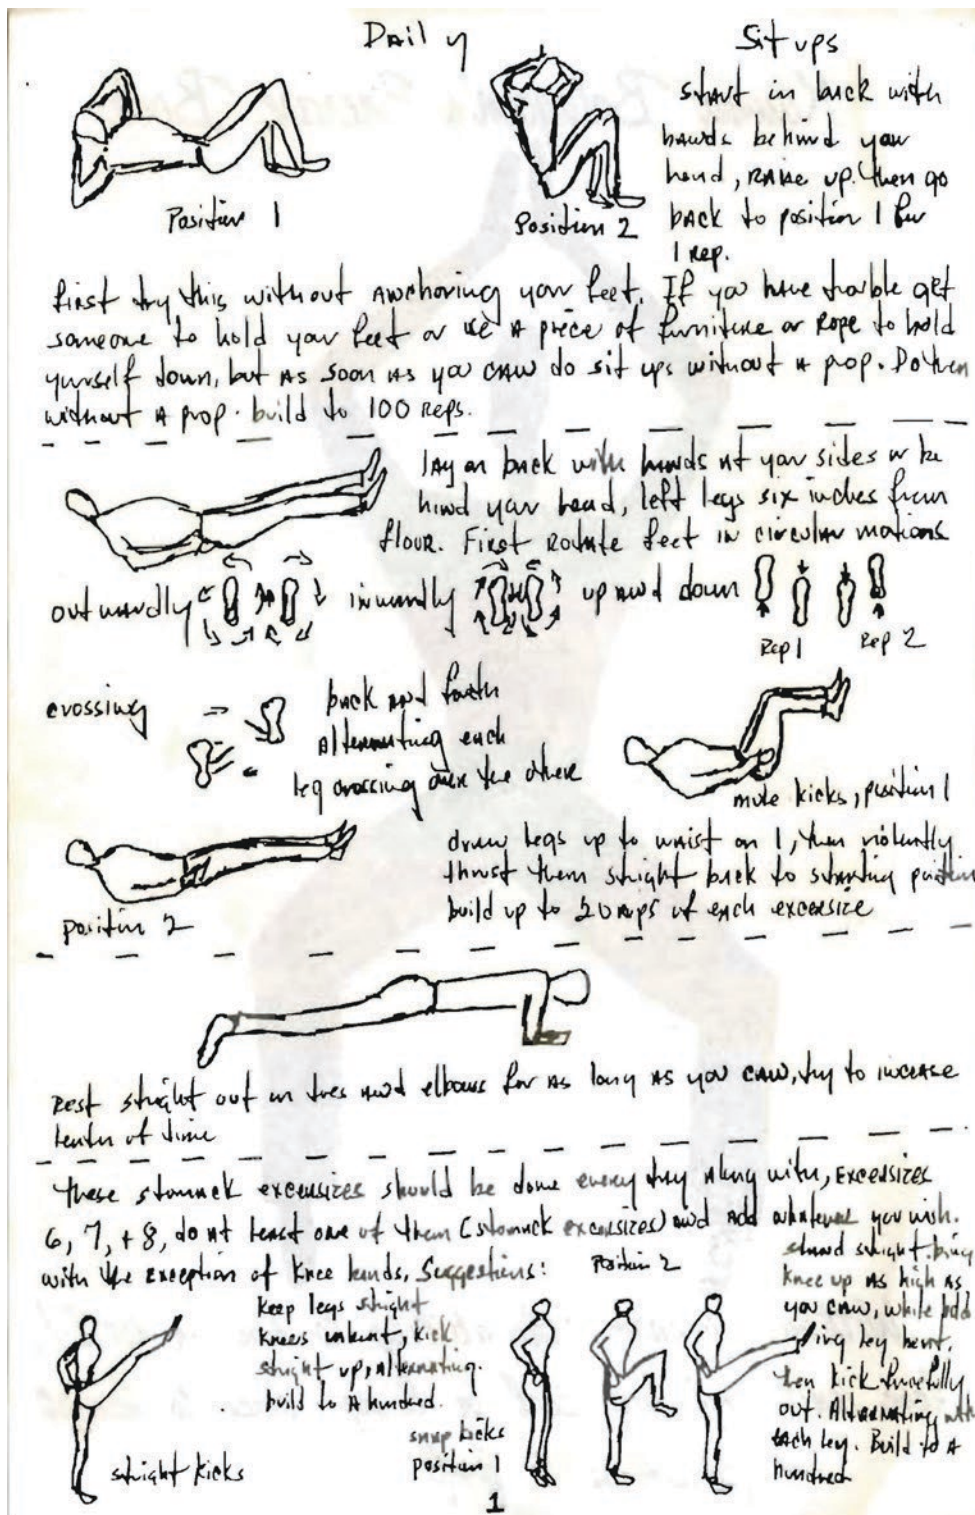 Daily
Sit ups
start in back with
hands behind your
head, RAise up. then go
bAck to position 1 for
1 Rep.
Position 1
Position 2
first try this without ANchoring your feet. If you hAve trouble get
someone to hold your feet or use A piece of furniture or Rope to hold
yurself down, but As soon As you cAN do sit ups without A prop. Do them
without A prop. build to 100 Reps.
lAy on bAck with hANds At your sides or be
hind your head, left legs six inches from
floor. First Rotate feet in circular motions
outwardly
inwardly
up ANd down
Rep 1
Rep 2
crossing
bAck ANd forth
Alternating each
leg crossing over the other
mule kicks, position 1
draw legs up to waist on 1, then violently
thrust them stright back to starting position
build up to 20 reps of each excersize
position 2
Rest stright out on toes ANd elbows for As long As you CAN, try to increase
of time
these stomack excersizes should be done every day Along with, excersizes
6, 7, + 8, do At least one of them (stomack excersizes) ANd Add whatever you wish.
with the exception of Knee bends, Suggestions:
Keep legs stright
Knees unbent, kick
stright up, Alternating.
build to A hundred.
stright kicks
Position 2
snap kicks
position 1
stand stright. bring
Knee up As high As
you CAN, while
leg bent.
then kick forcefully
out. Alternating with
each leg. Build to A
hundred
1